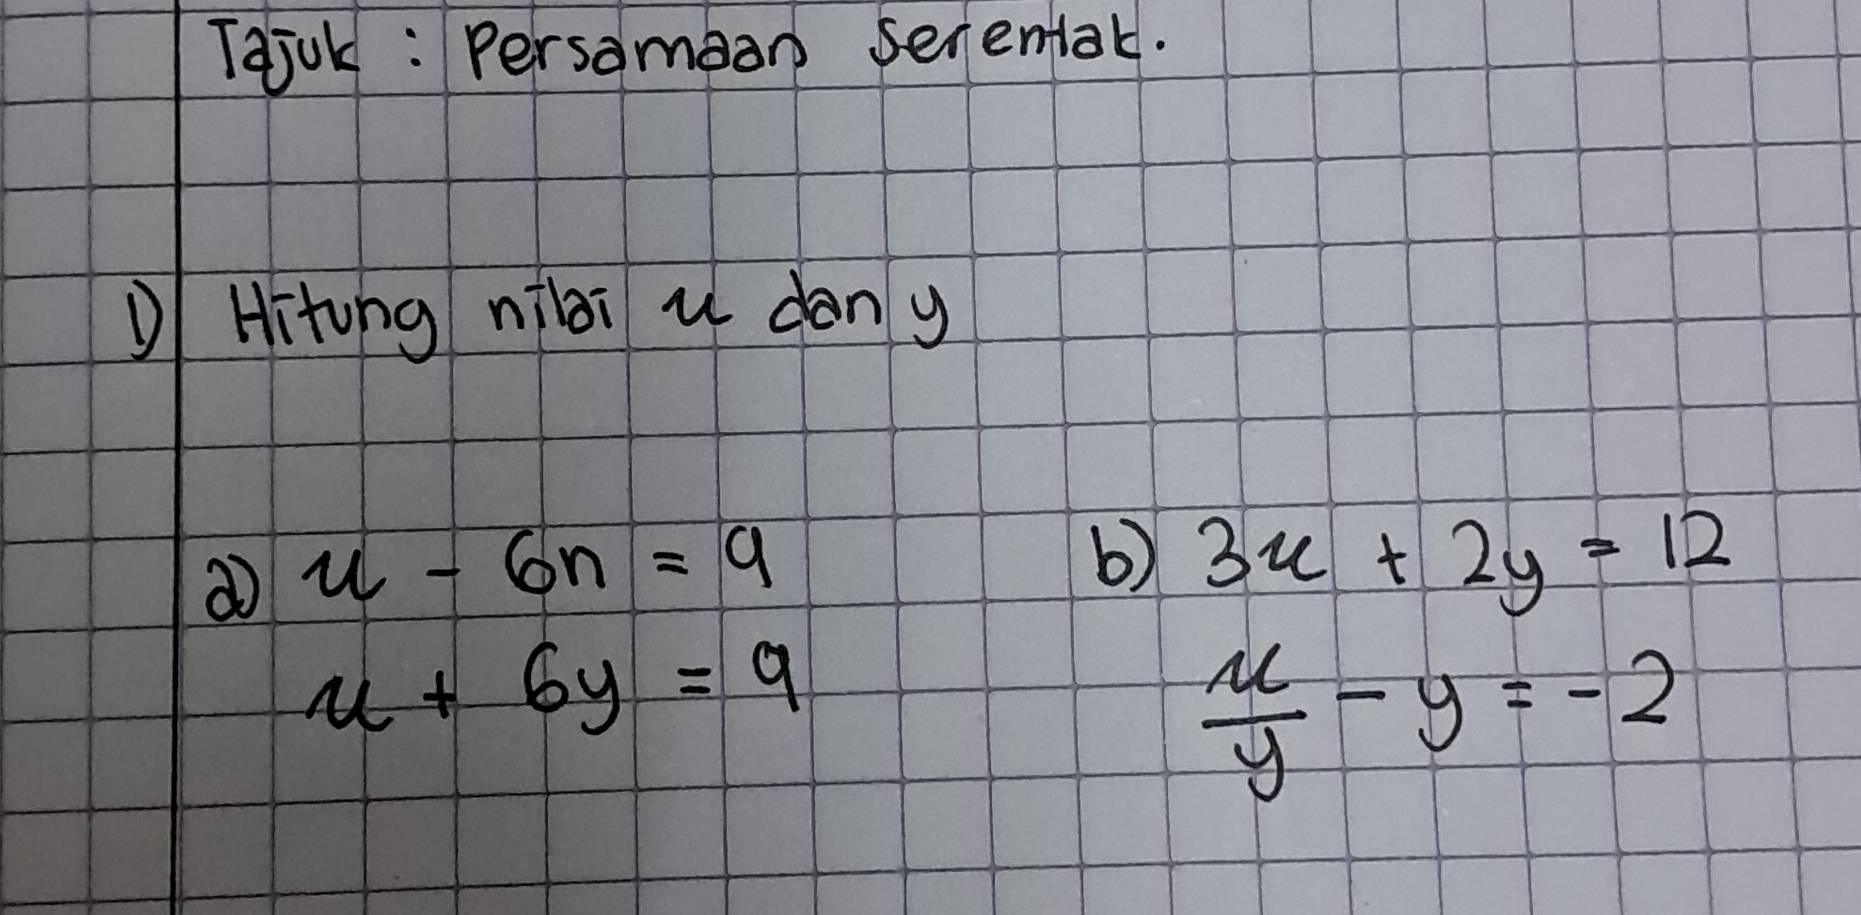 Tajuk : Persamaan Serentak.
1) Hitung nilai x dan y
a) x - 6n = 9
x + 6y = 9
b) 3x + 2y = 12
x/y - y = -2